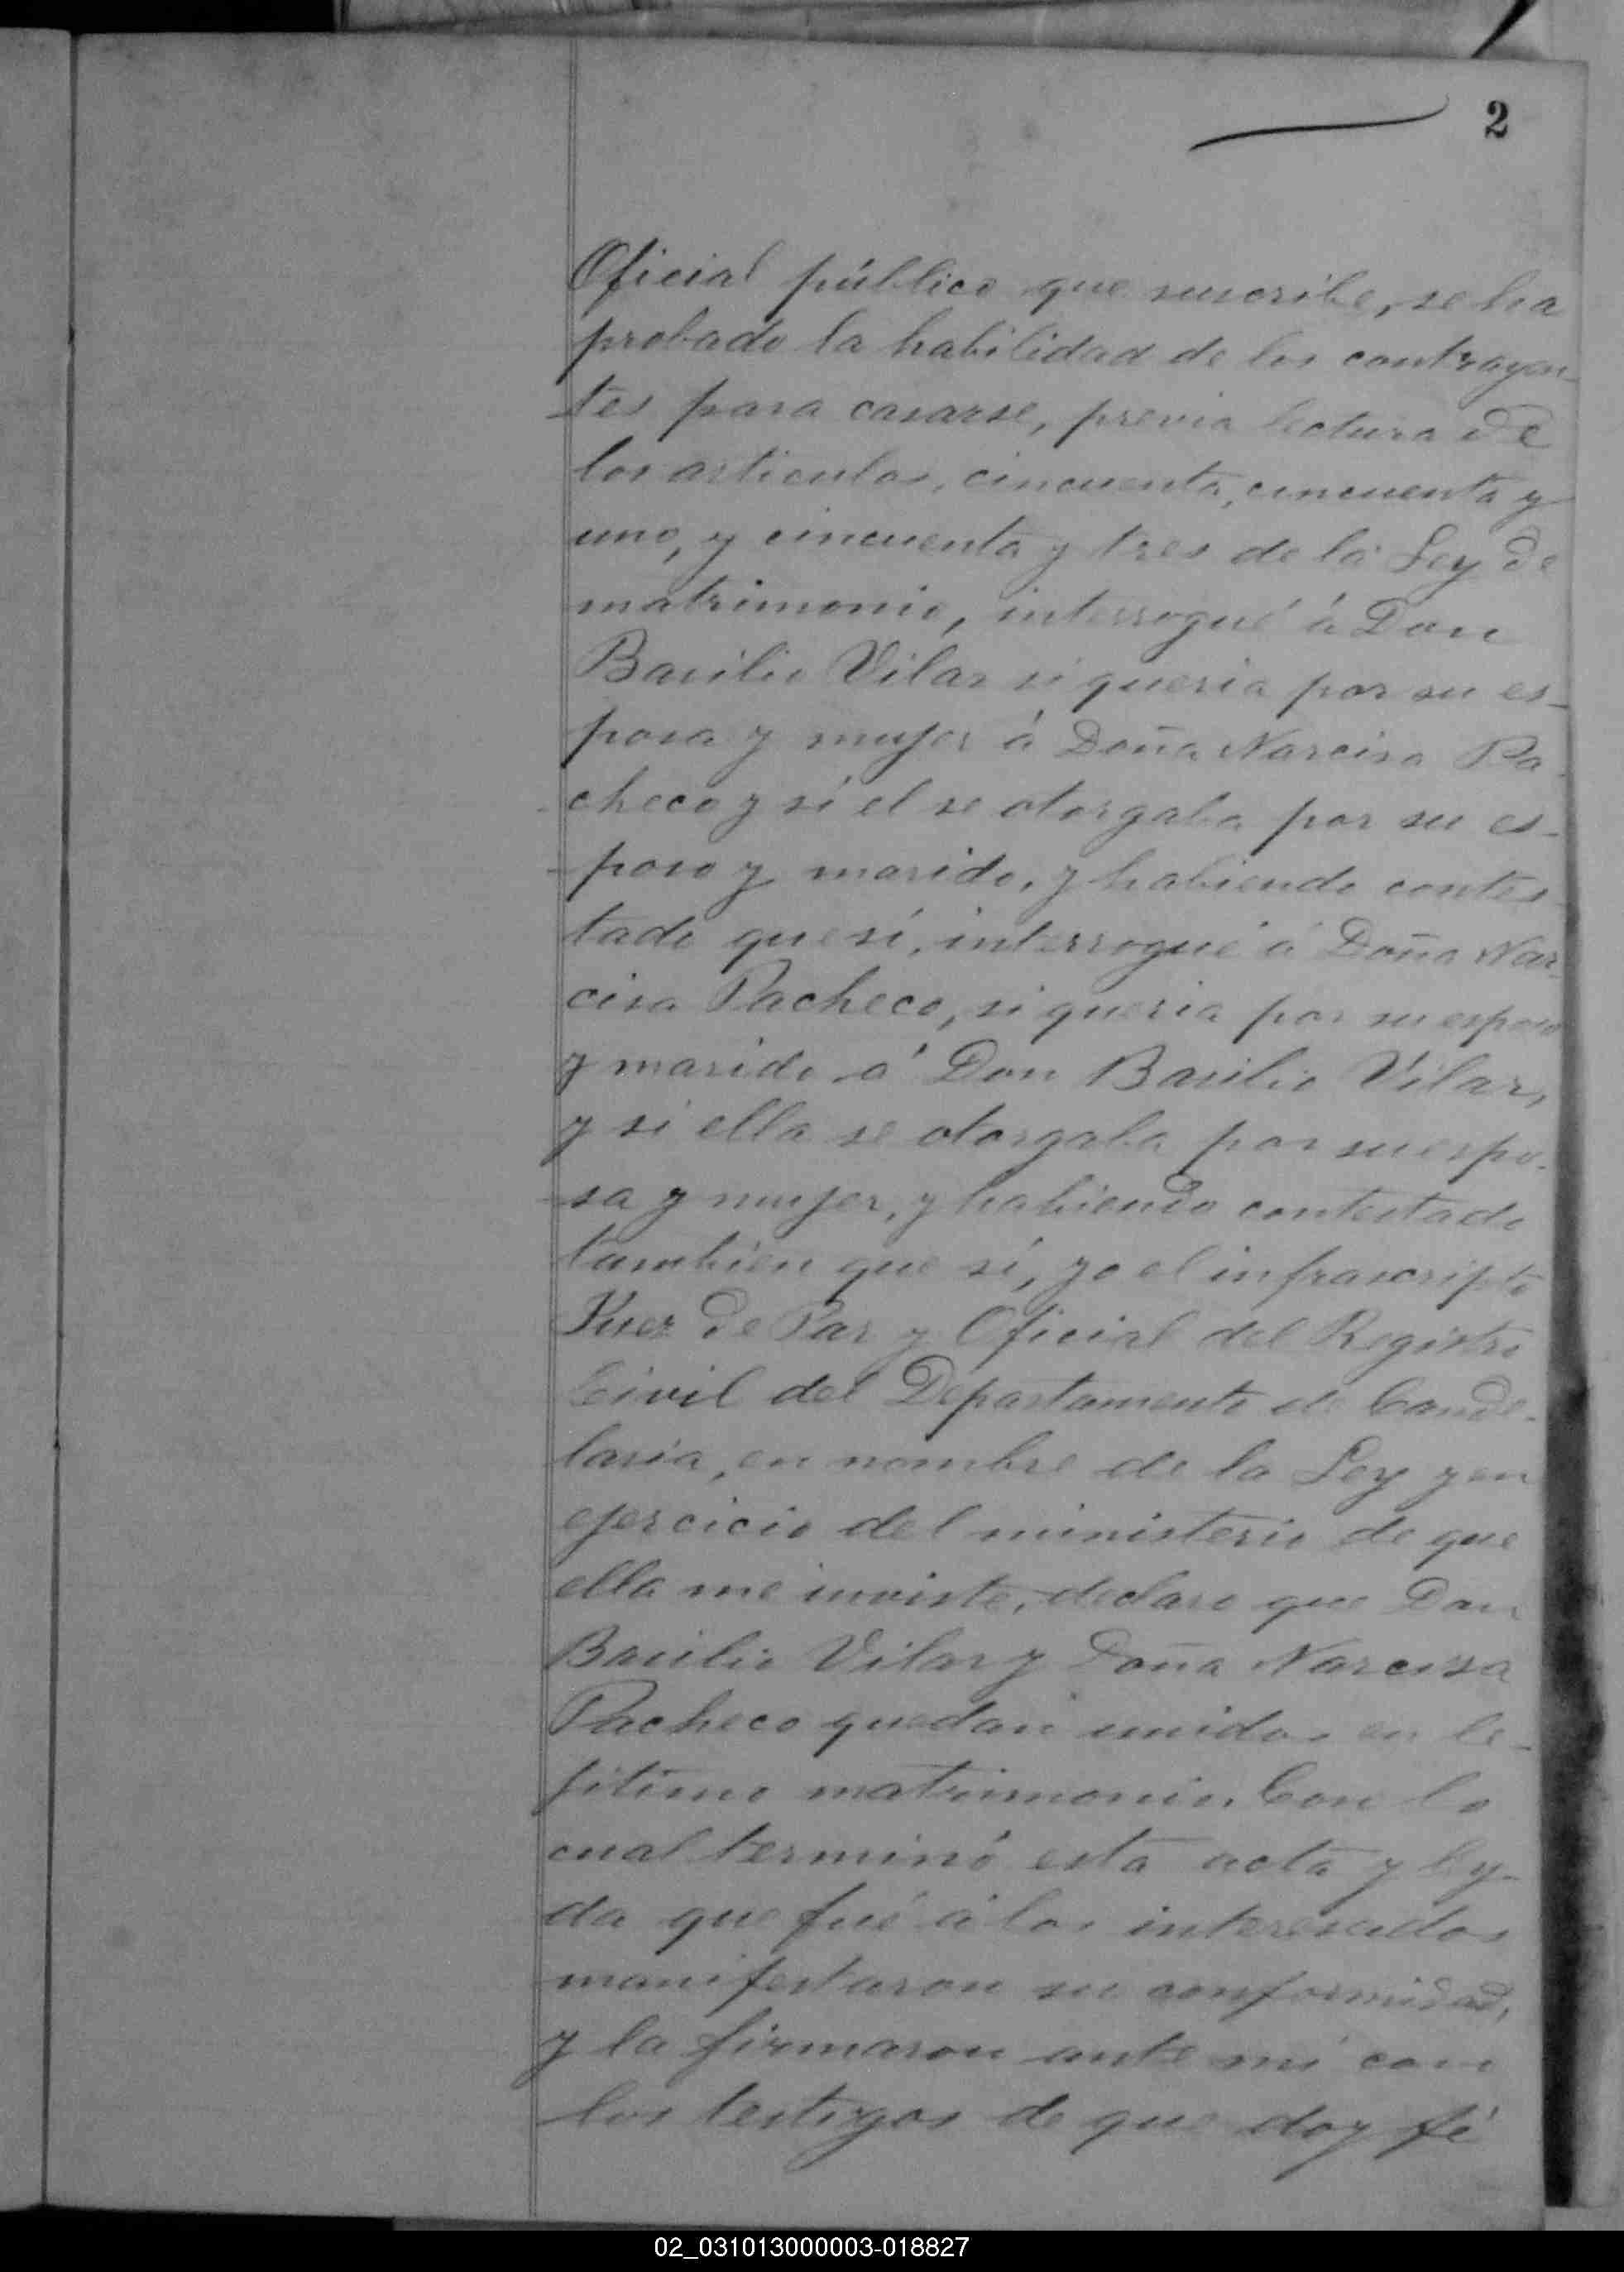 2
Oficial público que suscribe, se ha
probado la habilidad de los contrayen-
tes para casarse, previa lectura de
los articulos, cincuenta, cincuenta y
uno, y cincuenta y tres de la Ley de
matrimonio, interrogué á Don
Basilio Vilar si queria por su es-
posa y mujer á Doña Narcisa Pa-
checo y si el se otorgaba por su es-
poso y marido, y habiendo contes-
tado que sí, interrogué á Doña Nar-
cisa Pacheco, si queria por su esposo
y marido á Don Basilio Vilar,
y si ella se otorgaba por su espo-
sa y mujer, y habiendo contestado
tambien que sí, yo el infrascripto
Juez de Paz y Oficial del Registro
Civil del Departamento de Cande-
laria, en nombre de la Ley y en
ejercicio del ministerio de que
ella me inviste, declaro que Don
Basilio Vilar y Doña Narcisa
Pacheco quedan unidos en le-
jitimo matrimonio. Con lo
cual terminó esta acta y ley-
da que fué á los interesados
manifestaron su conformidad,
y la firmaron ante mi con
los testigos de que doy fé
02_031013000003-018827